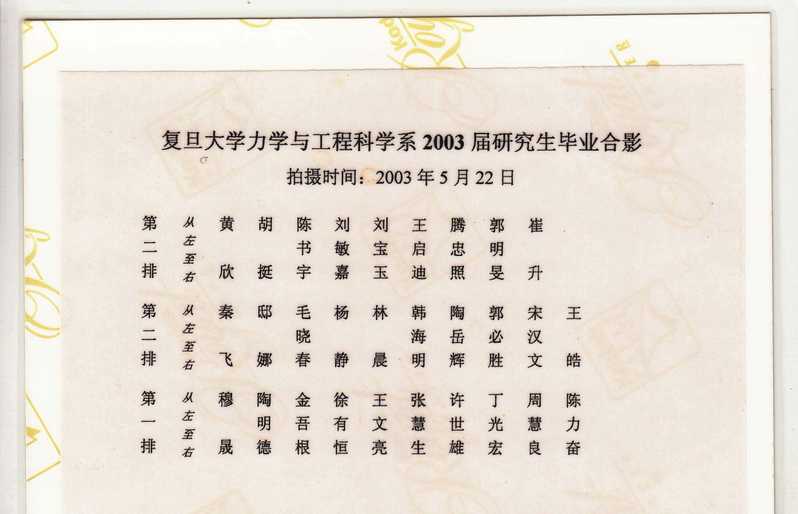 复旦大学力学与工程科学系 2003 届研究生毕业合影
拍摄时间：2003 年 5 月 22 日
第二排 从左至右 黄欣 胡挺 陈书宇 刘敏嘉 刘宝玉 王启迪 腾忠照 郭明旻 崔升
第二排 从左至右 秦飞 邸娜 毛晓春 杨静 林晨 韩海明 陶岳辉 郭必胜 宋汉文 王皓
第一排 从左至右 穆晟 陶明德 金吾根 徐有恒 王文亮 张慧生 许世雄 丁光宏 周慧良 陈力奋